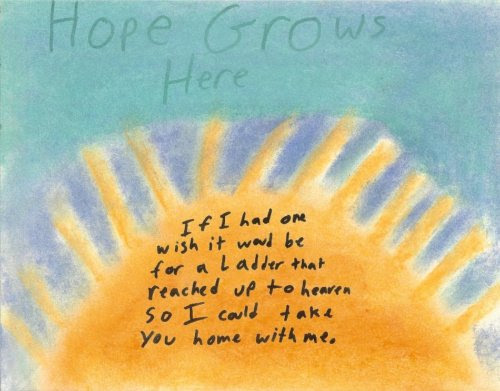 Hope Grows
Here
If I had one
wish it woud be
for a Ladder that
reached up to heaven
So I could take
you home with me.